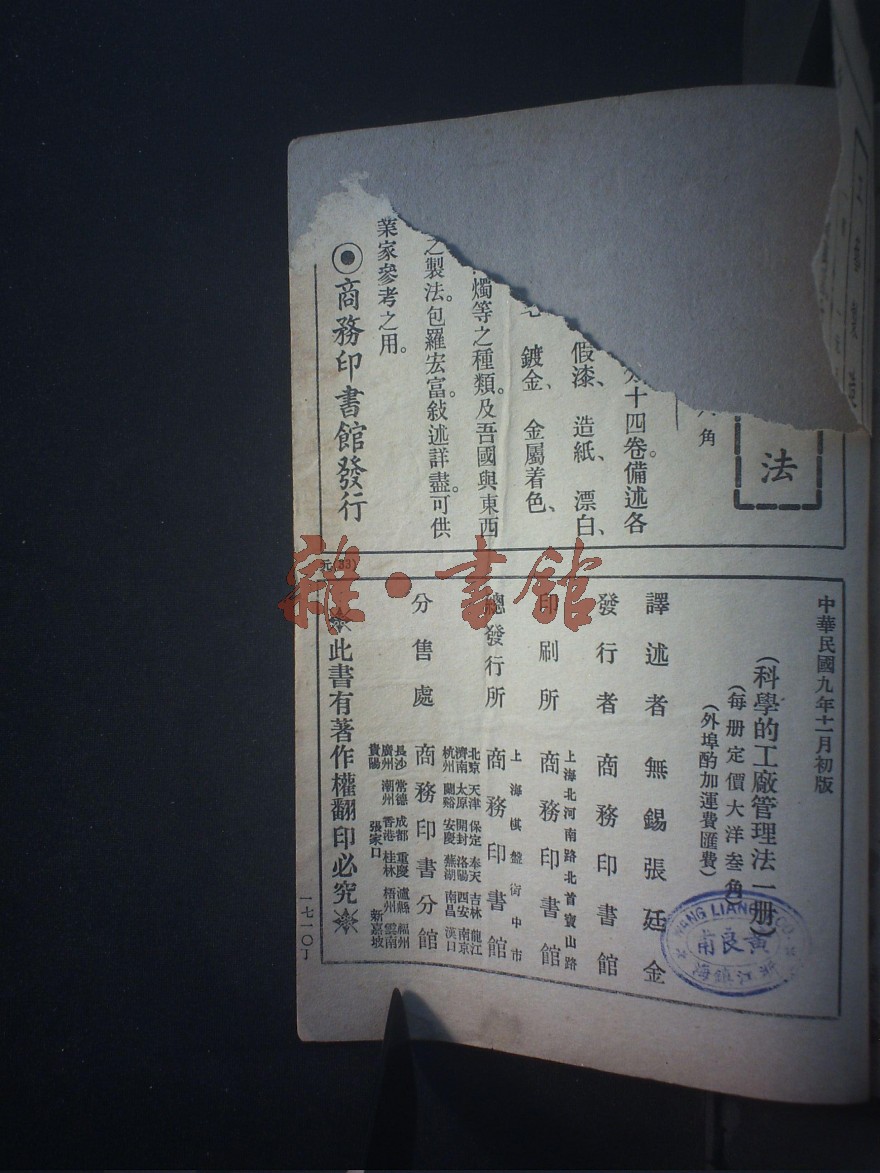 法
角
十四卷備述各
假漆、造紙、漂白、
鍍金、金屬着色、
燭等之種類。及吾國與東西
之製法。包羅宏富。敍述詳盡。可供
業家參考之用。
◉商務印書館發行
元(33)
中華民國九年十一月初版
(科學的工廠管理法一册)
(每册定價大洋叁角)
(外埠酌加運費匯費)
譯述者 無錫張廷金
發行者 商務印書館
上海北河南路北首寶山路
印刷所 商務印書館
上海棋盤街中市
總發行所 商務印書館
北京 天津 保定 奉天 吉林 龍江
濟南 太原 開封 洛陽 西安 南京
杭州 蘭谿 安慶 蕪湖 南昌 漢口
分售處 商務印書分館
長沙 常德 成都 重慶 瀘縣 福州
廣州 潮州 香港 桂林 梧州 雲南
貴陽 張家口 新嘉坡
※此書有著作權翻印必究※
一七一〇丁
WANG LIANG
黃良甫
雜·書館